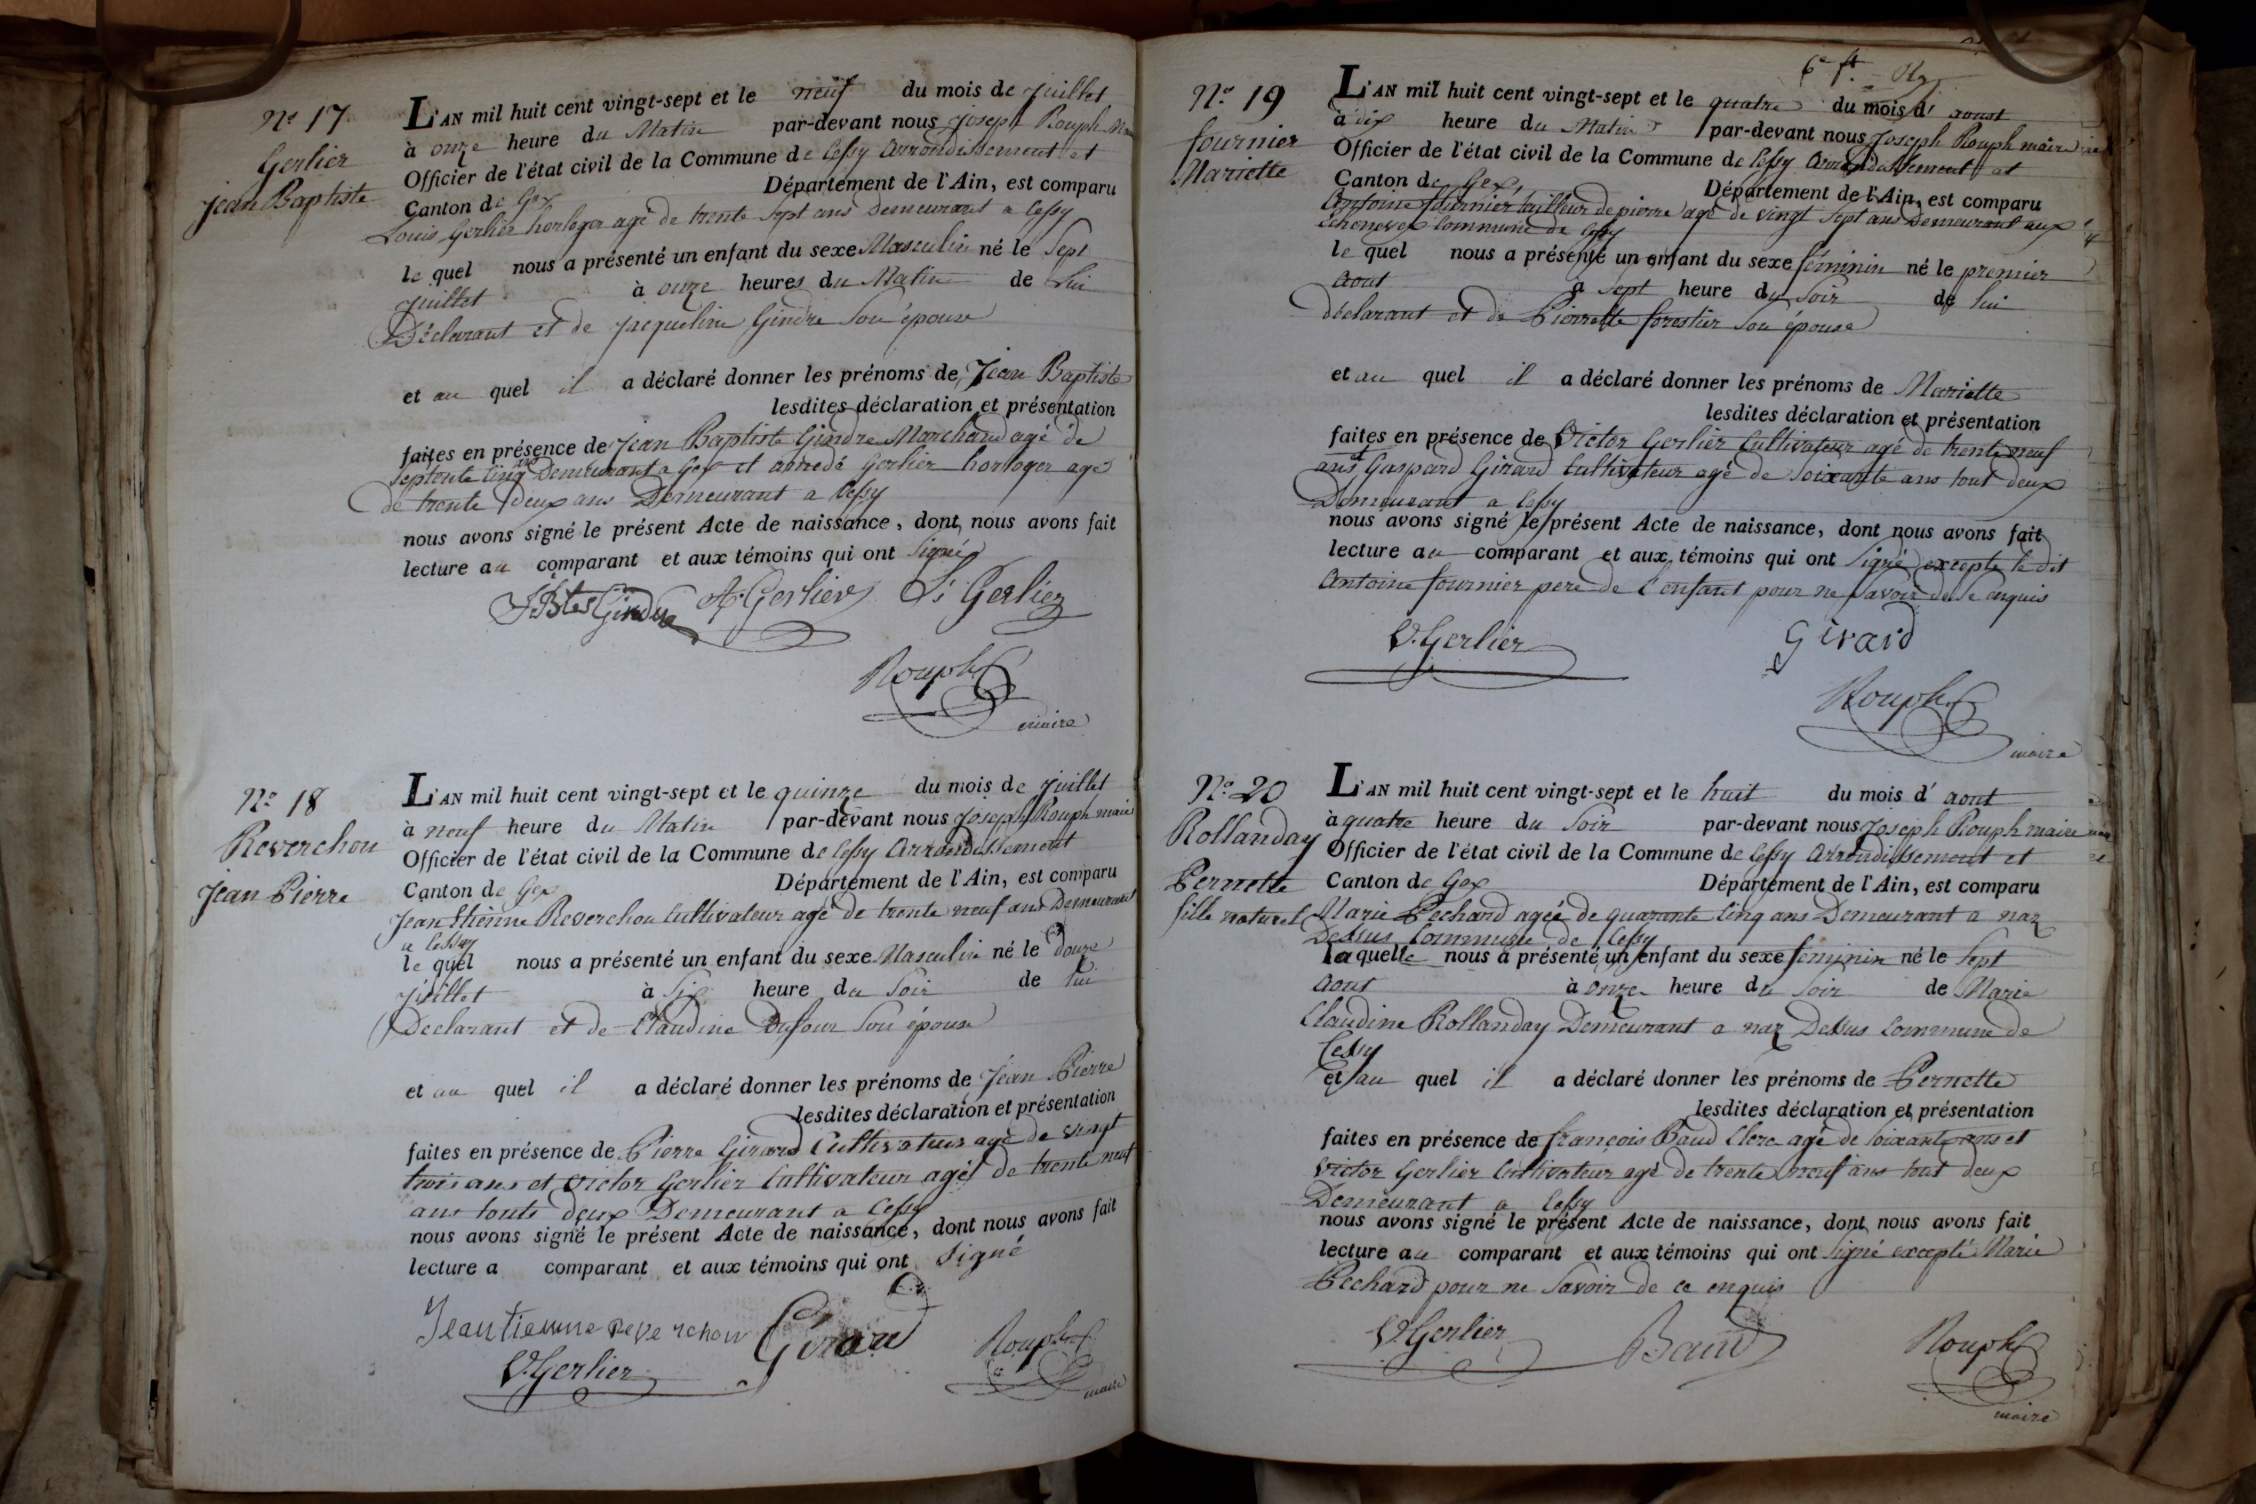 Nº 17
Gerlier
jean Baptiste
L'AN mil huit cent vingt-sept et le neuf du mois de juillet
à onze heure du Matin par-devant nous joseph Rouph
Officier de l'état civil de la Commune de Cessy Arrondissement et
Canton de Gex Département de l'Ain, est comparu
Louis Gerlier horloger agé de trente sept ans Demeurant a Cessy
le quel nous a présenté un enfant du sexe Masculin né le sept
juillet à onze heures du Matin de lui
Déclarant et de jacqueline Gindre son épouse
et au quel il a déclaré donner les prénoms de Jean Baptiste
lesdites déclaration et présentation
faites en présence de jean Baptiste Gindre Marchand agé de
septente cinq ans Demeurant a Gex et amedé Gerlier horloger agé
de trente deux ans Demeurant a Cessy
nous avons signé le présent Acte de naissance, dont nous avons fait
lecture au comparant et aux témoins qui ont signé
JBtes Gindre A. Gerlier Ls Gerlier
Rouph
maire
Nº 18
Reverchon
jean Pierre
L'AN mil huit cent vingt-sept et le quinze du mois de juillet
à neuf heure du Matin par-devant nous joseph Rouph maire
Officier de l'état civil de la Commune de Cessy Arrondissement
Canton de Gex Département de l'Ain, est comparu
Jean Etienne Reverchon Cultivateur agé de trente neuf ans Demeurant
a Cessy
le quel nous a présenté un enfant du sexe Masculin né le douze
juillet à six heure du soir de lui
Declarant et de Claudine Dufour son épouse
et au quel il a déclaré donner les prénoms de Jean Pierre
lesdites déclaration et présentation
faites en présence de Pierre Girard Cultivateur agé de vingt
trois ans et victor Gerlier Cultivateur agé de trente neuf
ans touts deux Demeurant a Cessy
nous avons signé le présent Acte de naissance, dont nous avons fait
lecture a comparant et aux témoins qui ont signé
Jeantienne reverchon Girard Rouph
V. Gerlier maire
6e ft.
Nº 19
fournier
Mariette
L'AN mil huit cent vingt-sept et le quatre du mois d' aoust
à dix heure du Matin par-devant nous Joseph Rouph maire
Officier de l'état civil de la Commune de Cessy Arrondissement et
Canton de Gex, Département de l'Ain, est comparu
Antoine fournier tailleur de pierre agé de vingt sept ans Demeurant aux
Echenevex Commune de Cessy
le quel nous a présenté un enfant du sexe féminin né le premier
Aout à sept heure du Soir de lui
déclarant et de Pierrette forestier son épouse
et au quel il a déclaré donner les prénoms de Mariette
lesdites déclaration et présentation
faites en présence de Victor Gerlier Cultivateur agé de trente neuf
ans Gaspard Girard Cultivateur agé de soixante ans tout deux
Demeurant a Cessy
nous avons signé le présent Acte de naissance, dont nous avons fait
lecture au comparant et aux témoins qui ont signé excepté le dit
Antoine fournier pere de l'enfant pour ne savoir de ce enquis
V. Gerlier Girard
Rouph
maire
Nº 20
Rollanday
Pernette
fille naturel
L'AN mil huit cent vingt-sept et le huit du mois d' aout
à quatre heure du Soir par-devant nous Joseph Rouph maire
Officier de l'état civil de la Commune de Cessy Arrondissement et
Canton de Gex Département de l'Ain, est comparu
Marie Pechard agée de quarante cinq ans Demeurant a naz
Dessus Commune de Cessy
la quelle nous a présenté un enfant du sexe feminin né le sept
Aout à onze heure du Soir de Marie
Claudine Rollanday Demeurant a naz Dessus commune de
Cessy
et au quel il a déclaré donner les prénoms de Pernette
lesdites déclaration et présentation
faites en présence de françois Baud Clerc agé de soixante ans et
victor Gerlier Cultivateur agé de trente neuf ans tout deux
Demeurant a Cessy
nous avons signé le présent Acte de naissance, dont nous avons fait
lecture au comparant et aux témoins qui ont signé excepté Marie
Pechard pour ne savoir de ce enquis
V. Gerlier Baud Rouph
maire